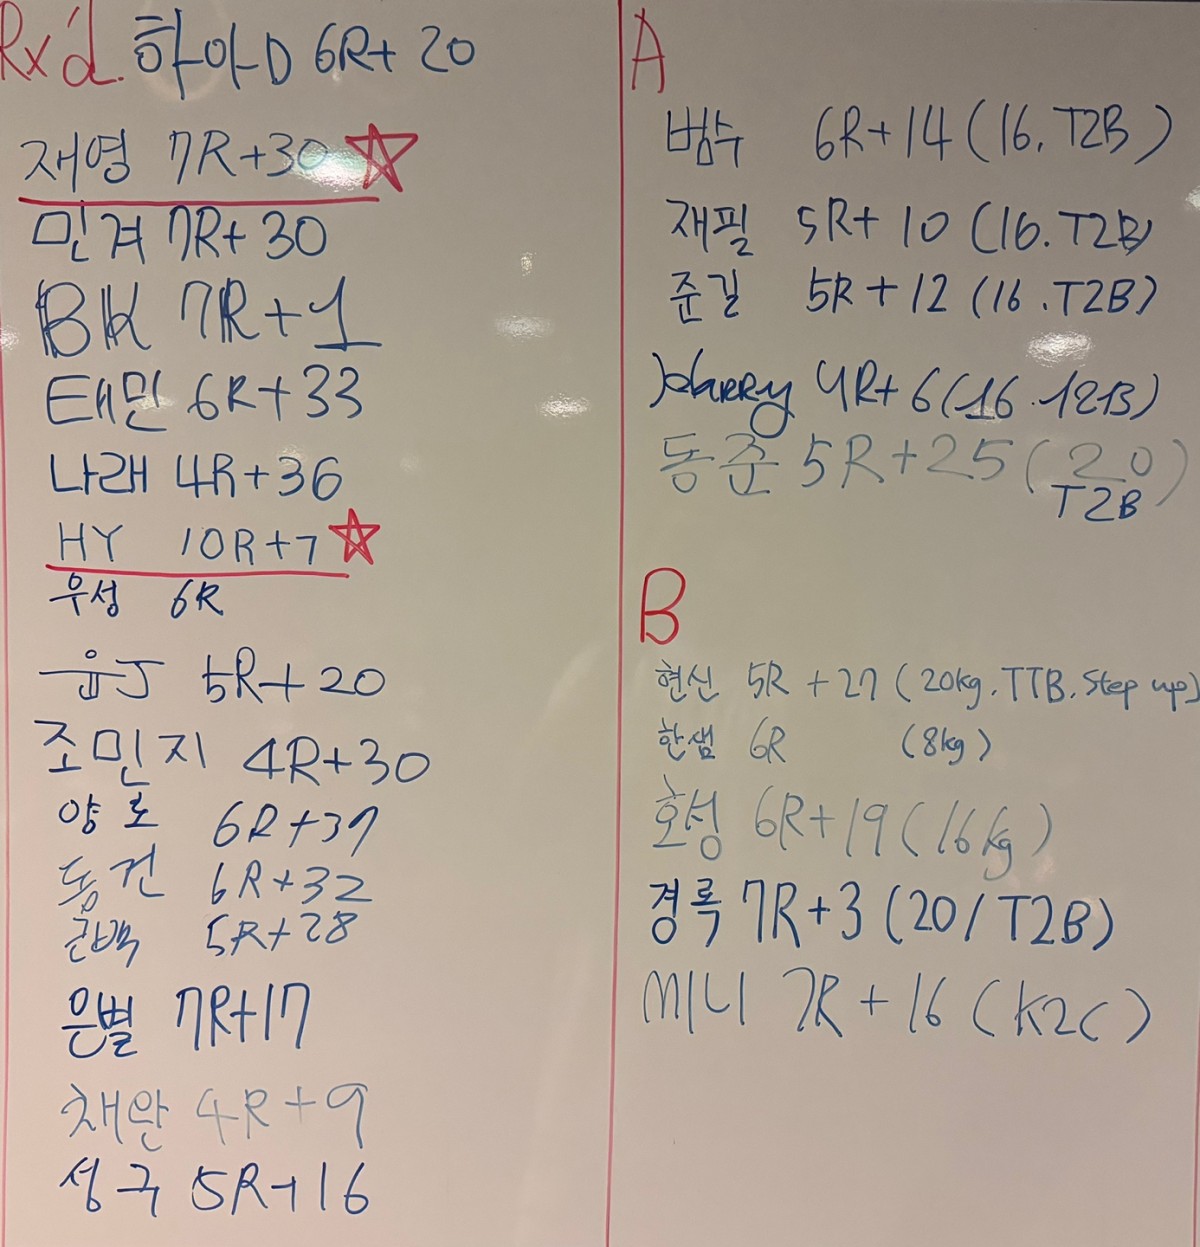 Rx'd. 하아D 6R+20
재영 7R+30
민겨 7R+30
BK 7R+1
태민 6R+33
나래 4R+36
HY 10R+7
우성 6R
윤J 5R+20
조민지 4R+30
양호 6R+37
동건 6R+32
5R+28
은별 7R+17
채완 4R+9
성국 5R+16
A
범수 6R+14 (16. T2B)
재필 5R+10 (16. T2B)
준길 5R+12 (16. T2B)
4R+6 (16. T2B)
동준 5R+25 (20 T2B)
B
현신 5R+27 (20kg. TTB. Step up)
한샘 6R (8kg)
호성 6R+19 (16kg)
경록 7R+3 (20/T2B)
미니 7R+16 (K2C)